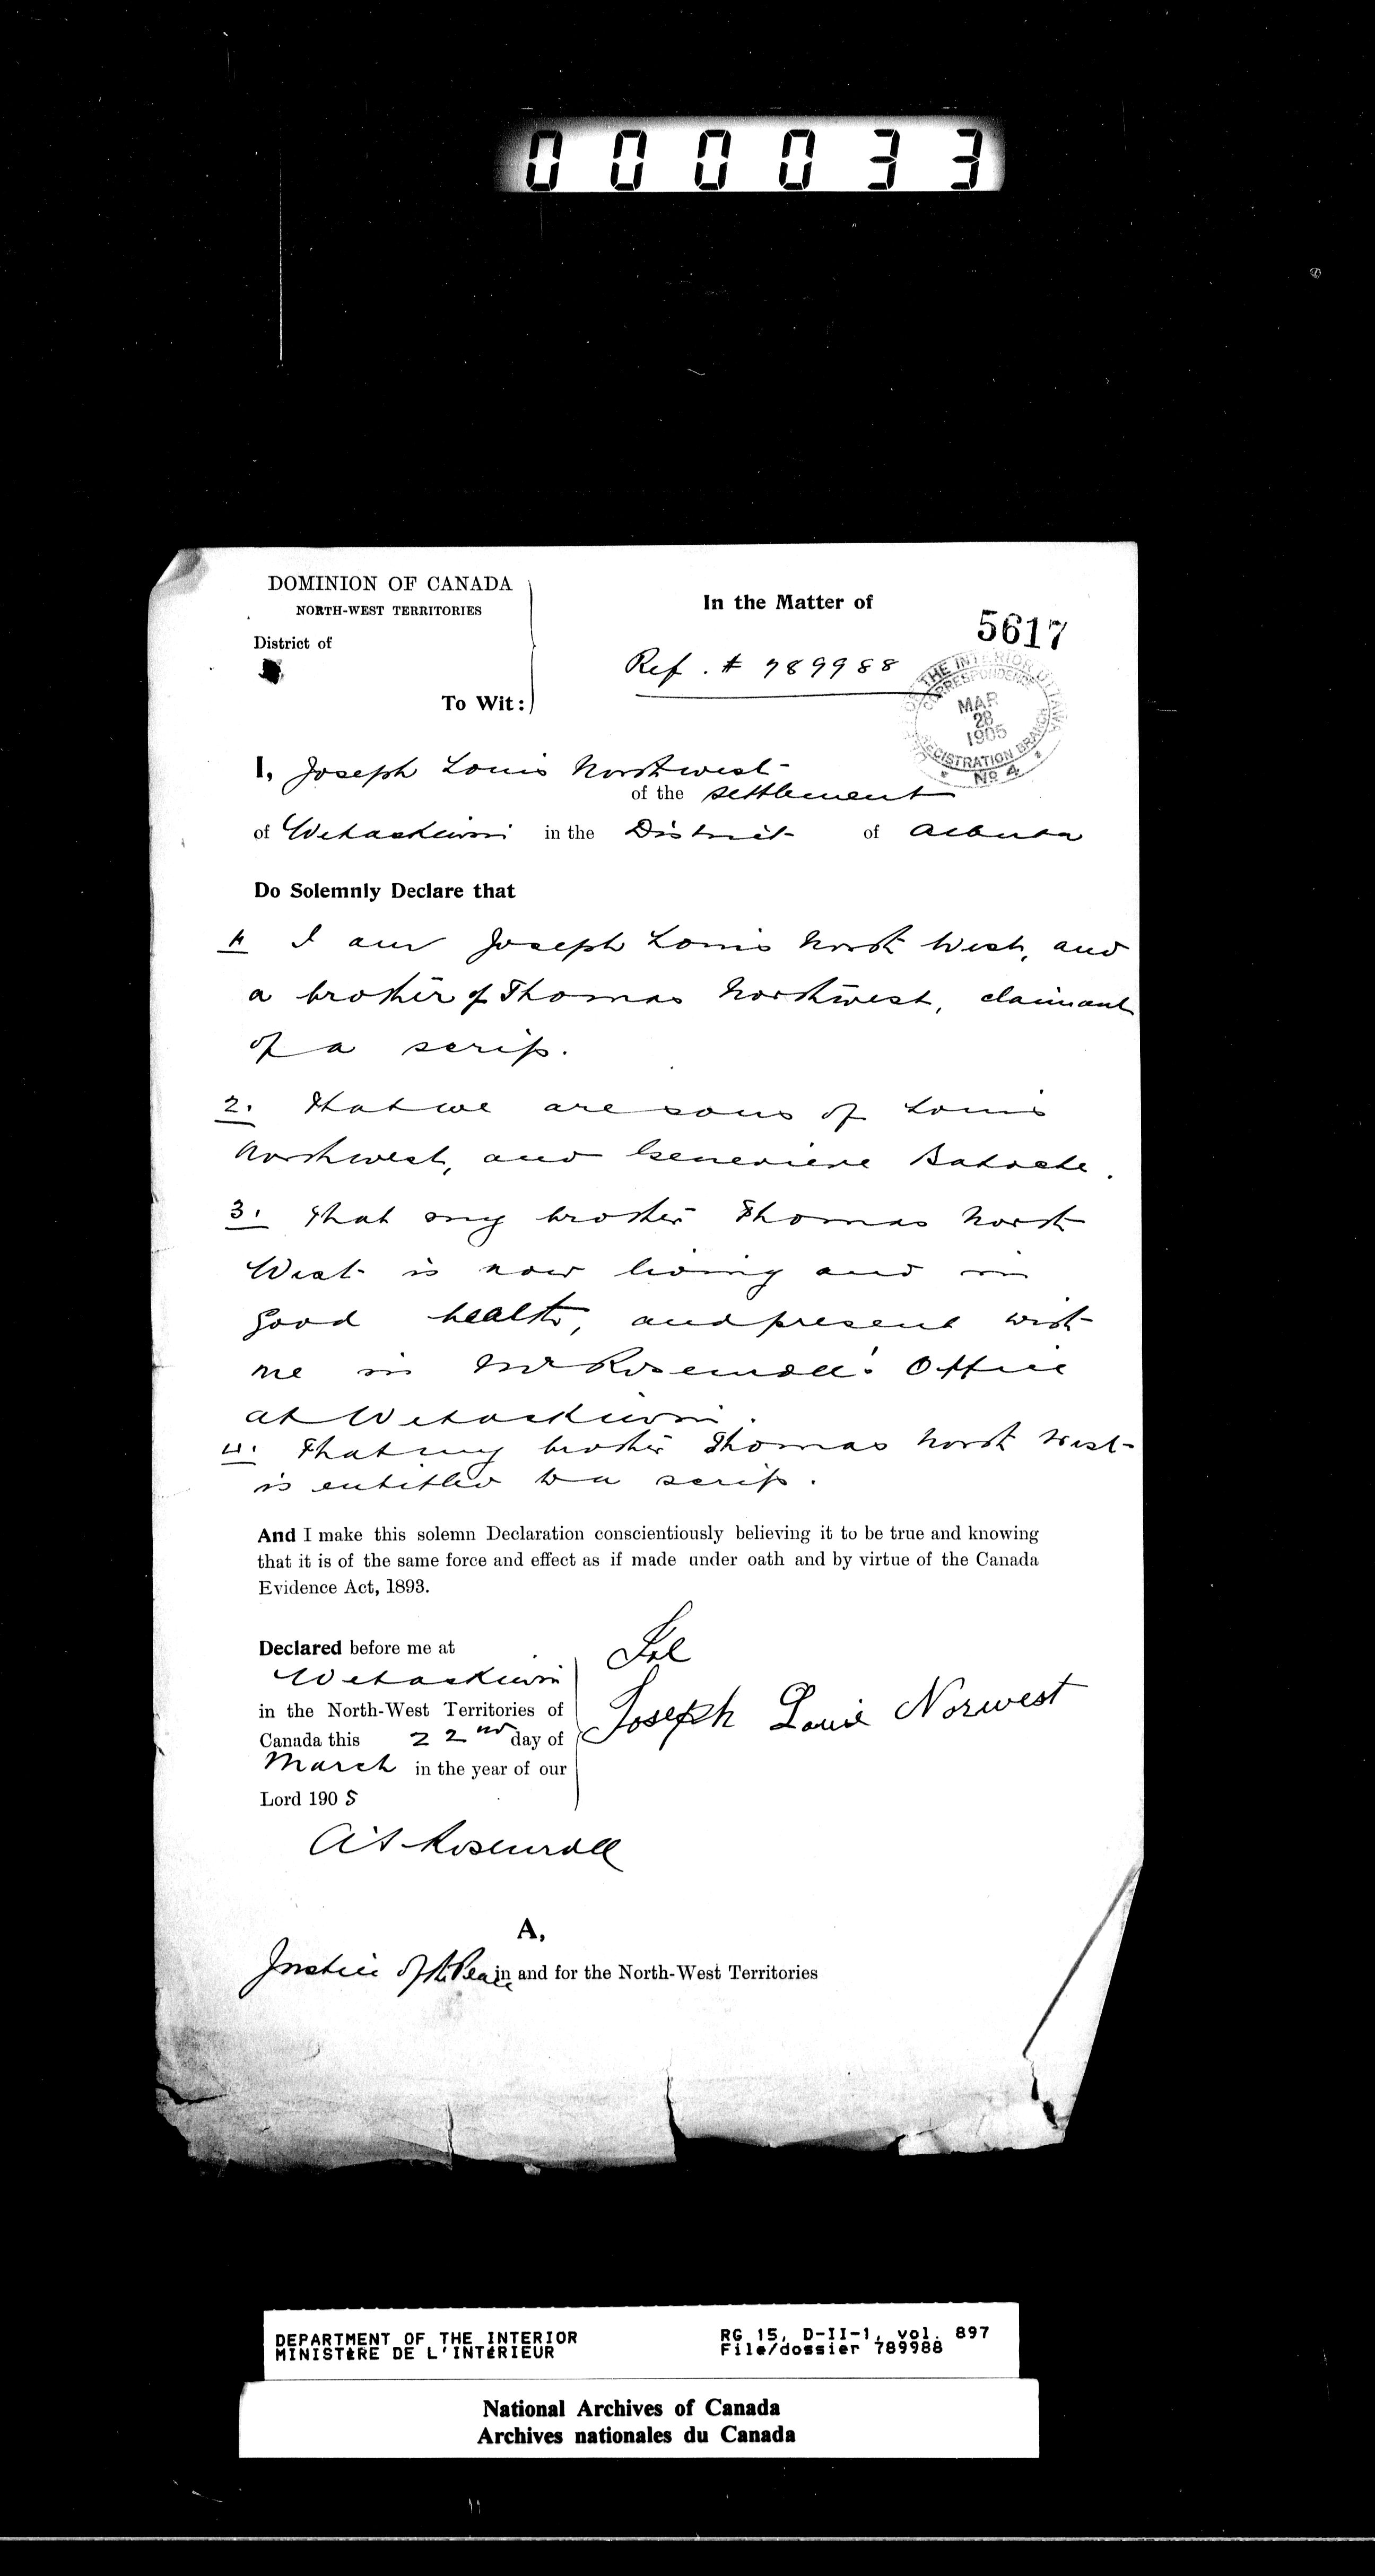 000033
DOMINION OF CANADA
NORTH-WEST TERRITORIES
District of
To Wit:
In the Matter of
5617
Ref. # 789988
THE INTERIOR OTTAWA
CORRESPONDENCE
MAR
28
1905
REGISTRATION BRANCH
* No 4 *
I, Joseph Louis Northwest
of the settlement
of Wetaskiwin in the District of Alberta
Do Solemnly Declare that
1. I am Joseph Louis North West, and
a brother of Thomas Northwest, claimant
of a scrip.
2. That we are sons of Louis
Northwest, and Genevieve Batoche.
3. That my brother Thomas North
West is now living and in
good health, and present with
me in Mr Rosenroll's Office
at Wetaskiwin.
4. That my brother Thomas North West
is entitled to a scrip.
And I make this solemn Declaration conscientiously believing it to be true and knowing
that it is of the same force and effect as if made under oath and by virtue of the Canada
Evidence Act, 1893.
Declared before me at
Wetaskiwin
in the North-West Territories of
Canada this 22nd day of
March in the year of our
Lord 1905
Joseph Louie Norwest
A S Rosenroll
A,
Justice of the Peace in and for the North-West Territories
DEPARTMENT OF THE INTERIOR
MINISTÈRE DE L'INTÉRIEUR
RG 15, D-II-1, vol. 897
File/dossier 789988
National Archives of Canada
Archives nationales du Canada